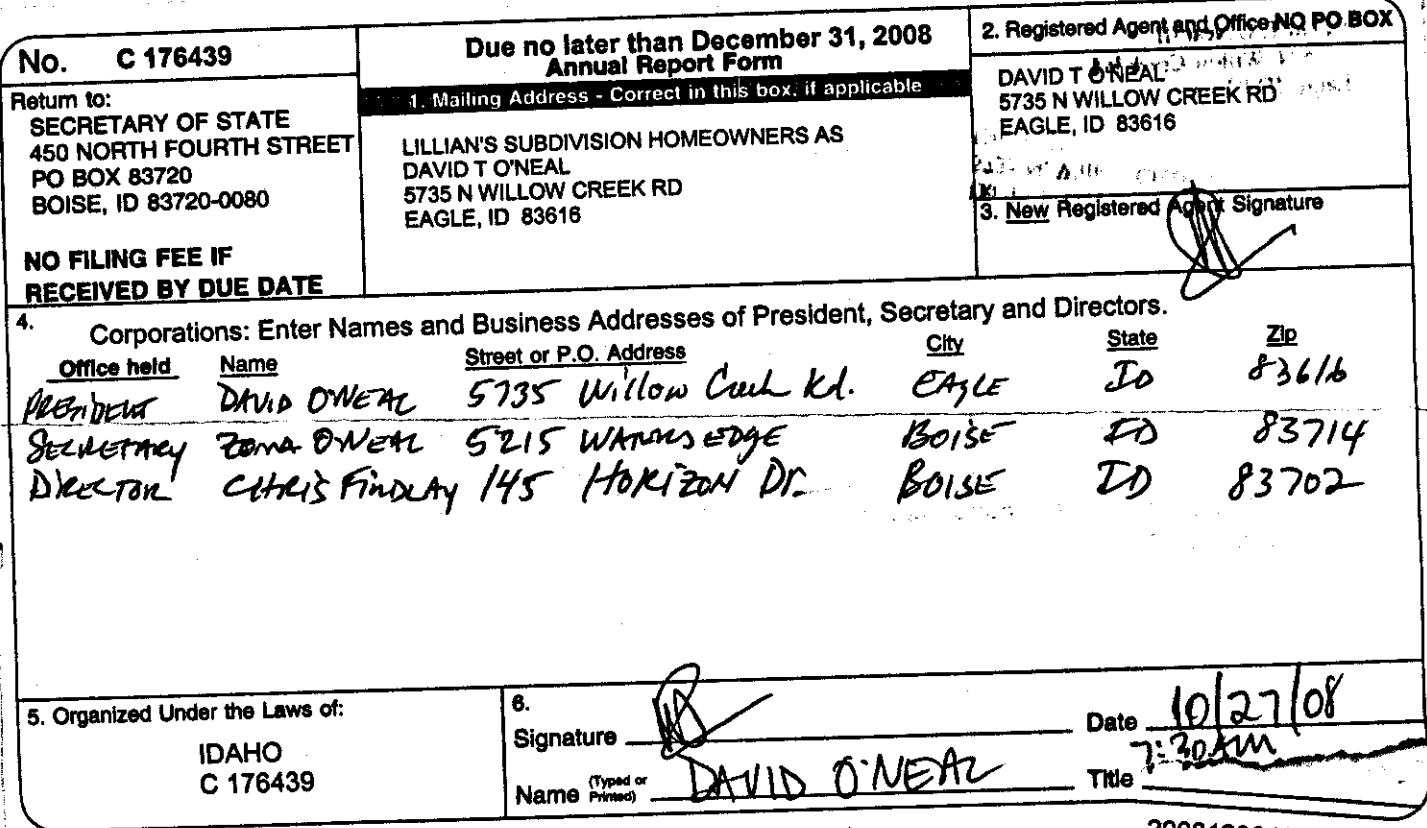 No. C 176439
Return to:
SECRETARY OF STATE
450 NORTH FOURTH STREET
PO BOX 83720
BOISE, ID 83720-0080
NO FILING FEE IF
RECEIVED BY DUE DATE
Due no later than December 31, 2008
Annual Report Form
1. Mailing Address - Correct in this box, if applicable
LILLIAN'S SUBDIVISION HOMEOWNERS AS
DAVID T O'NEAL
5735 N WILLOW CREEK RD
EAGLE, ID 83616
2. Registered Agent and Office NO PO BOX
DAVID T O'NEAL
5735 N WILLOW CREEK RD
EAGLE, ID 83616
3. New Registered Agent Signature
4. Corporations: Enter Names and Business Addresses of President, Secretary and Directors.
Office held Name Street or P.O. Address City State Zip
PRESIDENT DAVID O'NEAL 5735 Willow Creek Rd. EAGLE ID 83616
SECRETARY ZOMA O'NEAL 5215 EDGE BOISE ID 83714
DIRECTOR CHRIS FINDLAY 145 HORIZON Dr. BOISE ID 83702
5. Organized Under the Laws of:
IDAHO
C 176439
6.
Signature
Date 10/27/08
7:30AM
Name (Typed or Printed) DAVID O'NEAL
Title